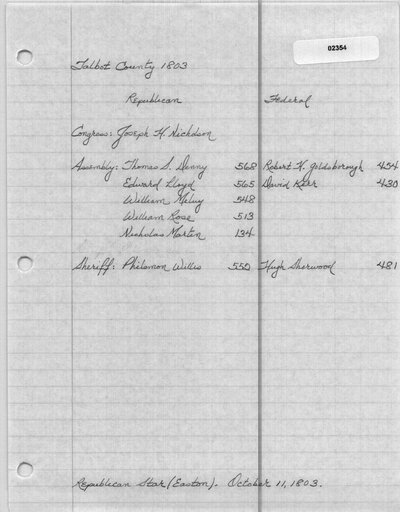 02354
Talbot County 1803
Republican Federal
Congress: Joseph H. Nicholson
Assembly: Thomas S. Denny 568 Robert H. Goldsborough 454
Edward Lloyd 565 David Kerr 430
William Meluy 548
William Rose 513
Nicholas Martin 134
Sheriff: Philemon Willis 550 Hugh Sherwood 481
Republican Star (Easton). October 11, 1803.